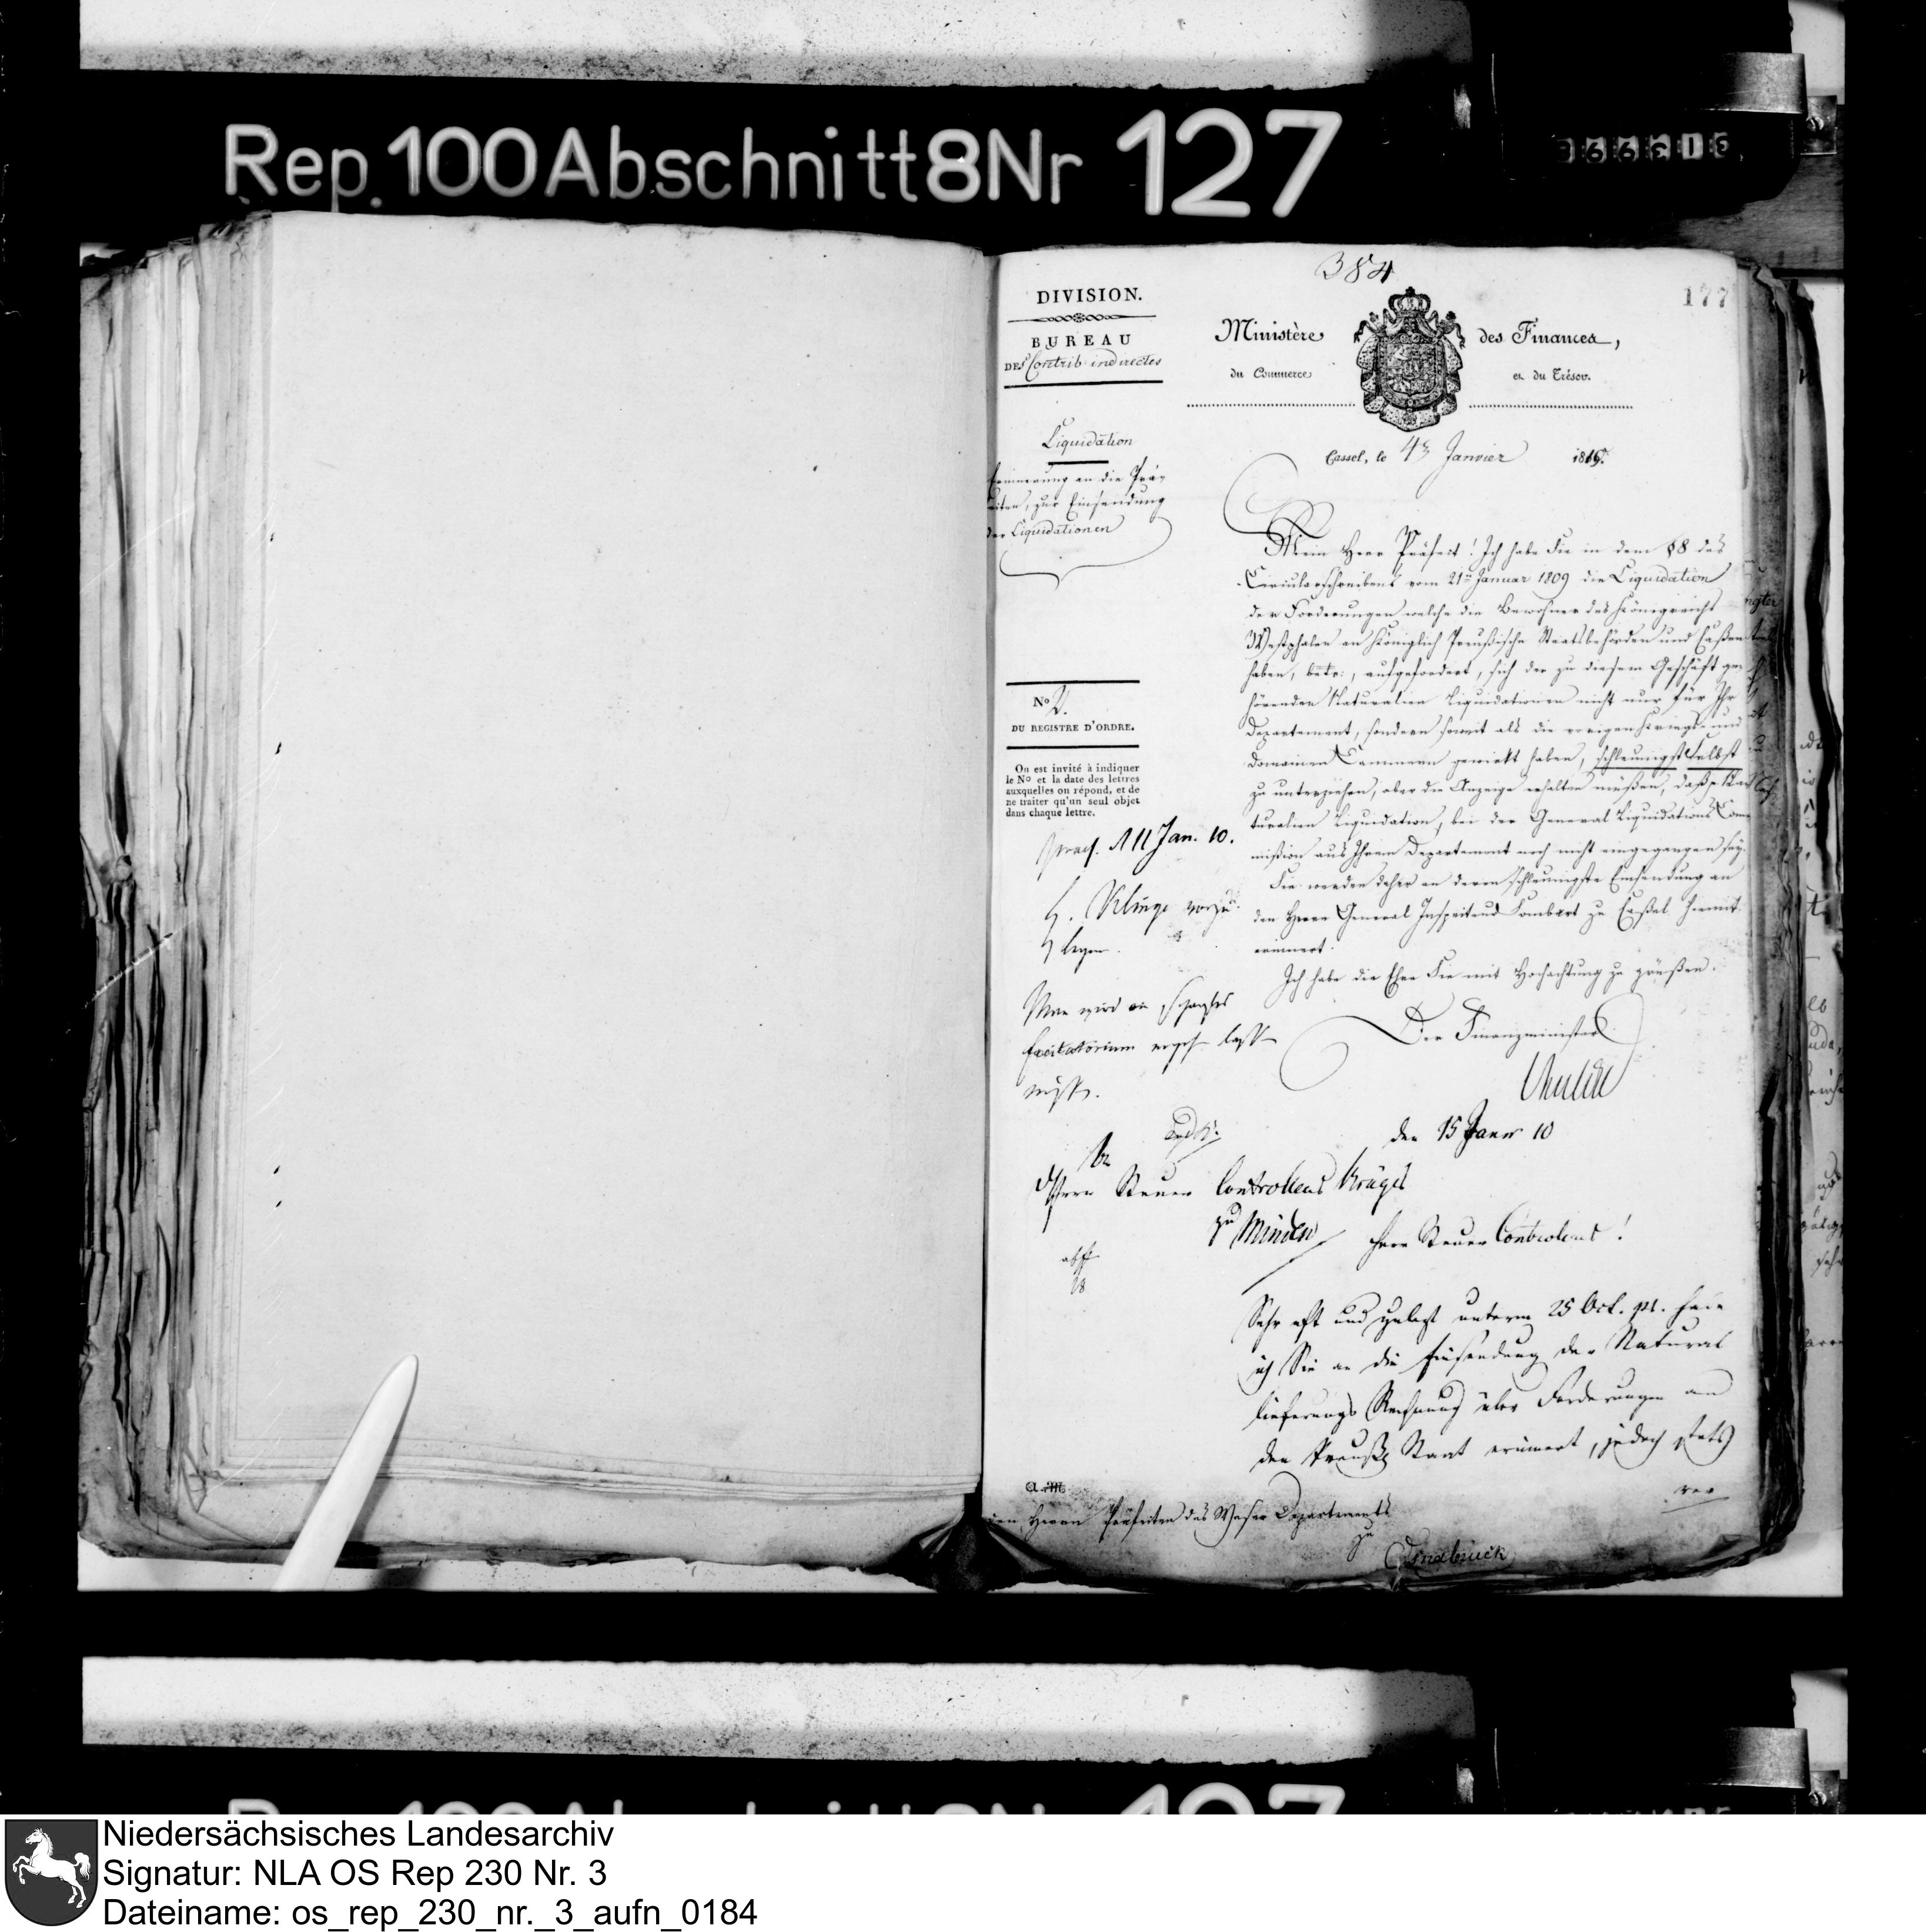 Rep. 100 Abschnitt 8 Nr 127
384
177
DIVISION.
BUREAU
DES Contrib. indirectes
Ministère des Finances,
du Commerce et du Trésor.
Liquidation
Erinnerung an die Prä-
fecten, zur Einsendung
der Liquidationen
Cassel, le 4n Janvier 1810.
Mein Herr Präfect! Ich habe Sie in dem §8 des
Circularschreibens vom 21ten Januar 1809 die Liquidation
der Forderungen welche die Bewohner des Königreichs
Westphalen an Königlich Preußische Staatsbehörden und Caßen
haben, betr:, aufgefordert, sich der zu diesem Geschäft ge-
hörenden Naturalien Liquidationen nicht nur für Ihr
Departement, sondern soweit als die vorigen Kriegs- und
Domainen Cammern gewirkt haben, schleunigst selbst
zu unterziehen, aber die Anzeige erhalten müßen, daß Na-
turalien Liquidation, bei der General Liquidations Com-
mißion aus Ihrem Departement noch nicht eingegangen sey.
Sie werden daher an deren schleunigste Einsendung an
den Herrn General Inspecteur Sombart zu Caßel hiermit
erinnert.
Ich habe die Ehre Sie mit Hochachtung zu grüßen.
Der Finanzminister
No 2.
DU REGISTRE D'ORDRE.
On est invité à indiquer
le No et la date des lettres
auxquelles on répond, et de
ne traiter qu'un seul objet
dans chaque lettre.
11 Jan. 10.
H. Klinge vorzu-
legen.
Man wird ein scharfes
Excitatorium ergehn laßen
müßen.
den 15 Janr 10
An
Herrn Steuer Controlleur Krüger
zu Minden
Herr Steuer Controleur!
Sehr oft und zuletzt unterm 25 Oct. pr. habe
ich Sie an die Einsendung der Natural
lieferungs Rechnung über Forderungen an
den Preuß. Staat erinnert, jedoch stets
den Herrn Präfecten des Weser Departements
zu
Osnabrück
Niedersächsisches Landesarchiv
Signatur: NLA OS Rep 230 Nr. 3
Dateiname: os_rep_230_nr._3_aufn_0184